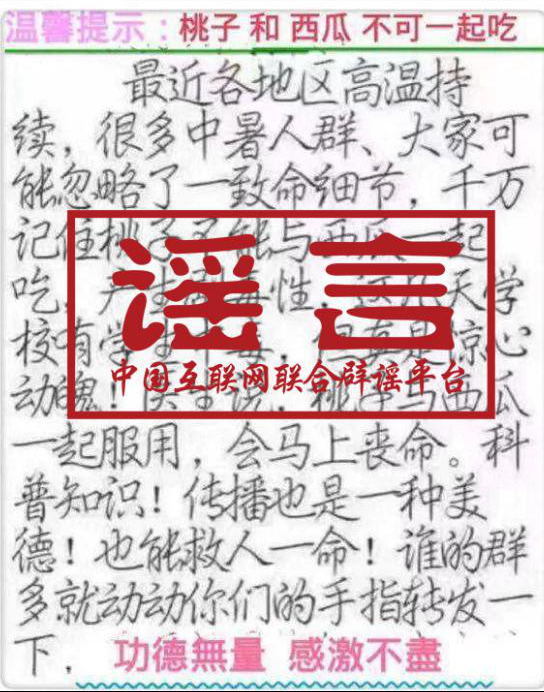 温馨提示：桃子 和 西瓜 不可一起吃
最近各地区高温持
续，很多中暑人群、大家可
能忽略了一致命细节，千万
记住桃子不能与西瓜一起
吃，产生 性，这几天学
校有学生中毒， 惊心
动魄！医生说，桃子与西瓜
谣言
中国互联网联合辟谣平台
一起服用，会马上丧命。科
普知识！传播也是一种美
德！也能救人一命！谁的群
多就动动你们的手指转发一
下．功德無量 感激不盡